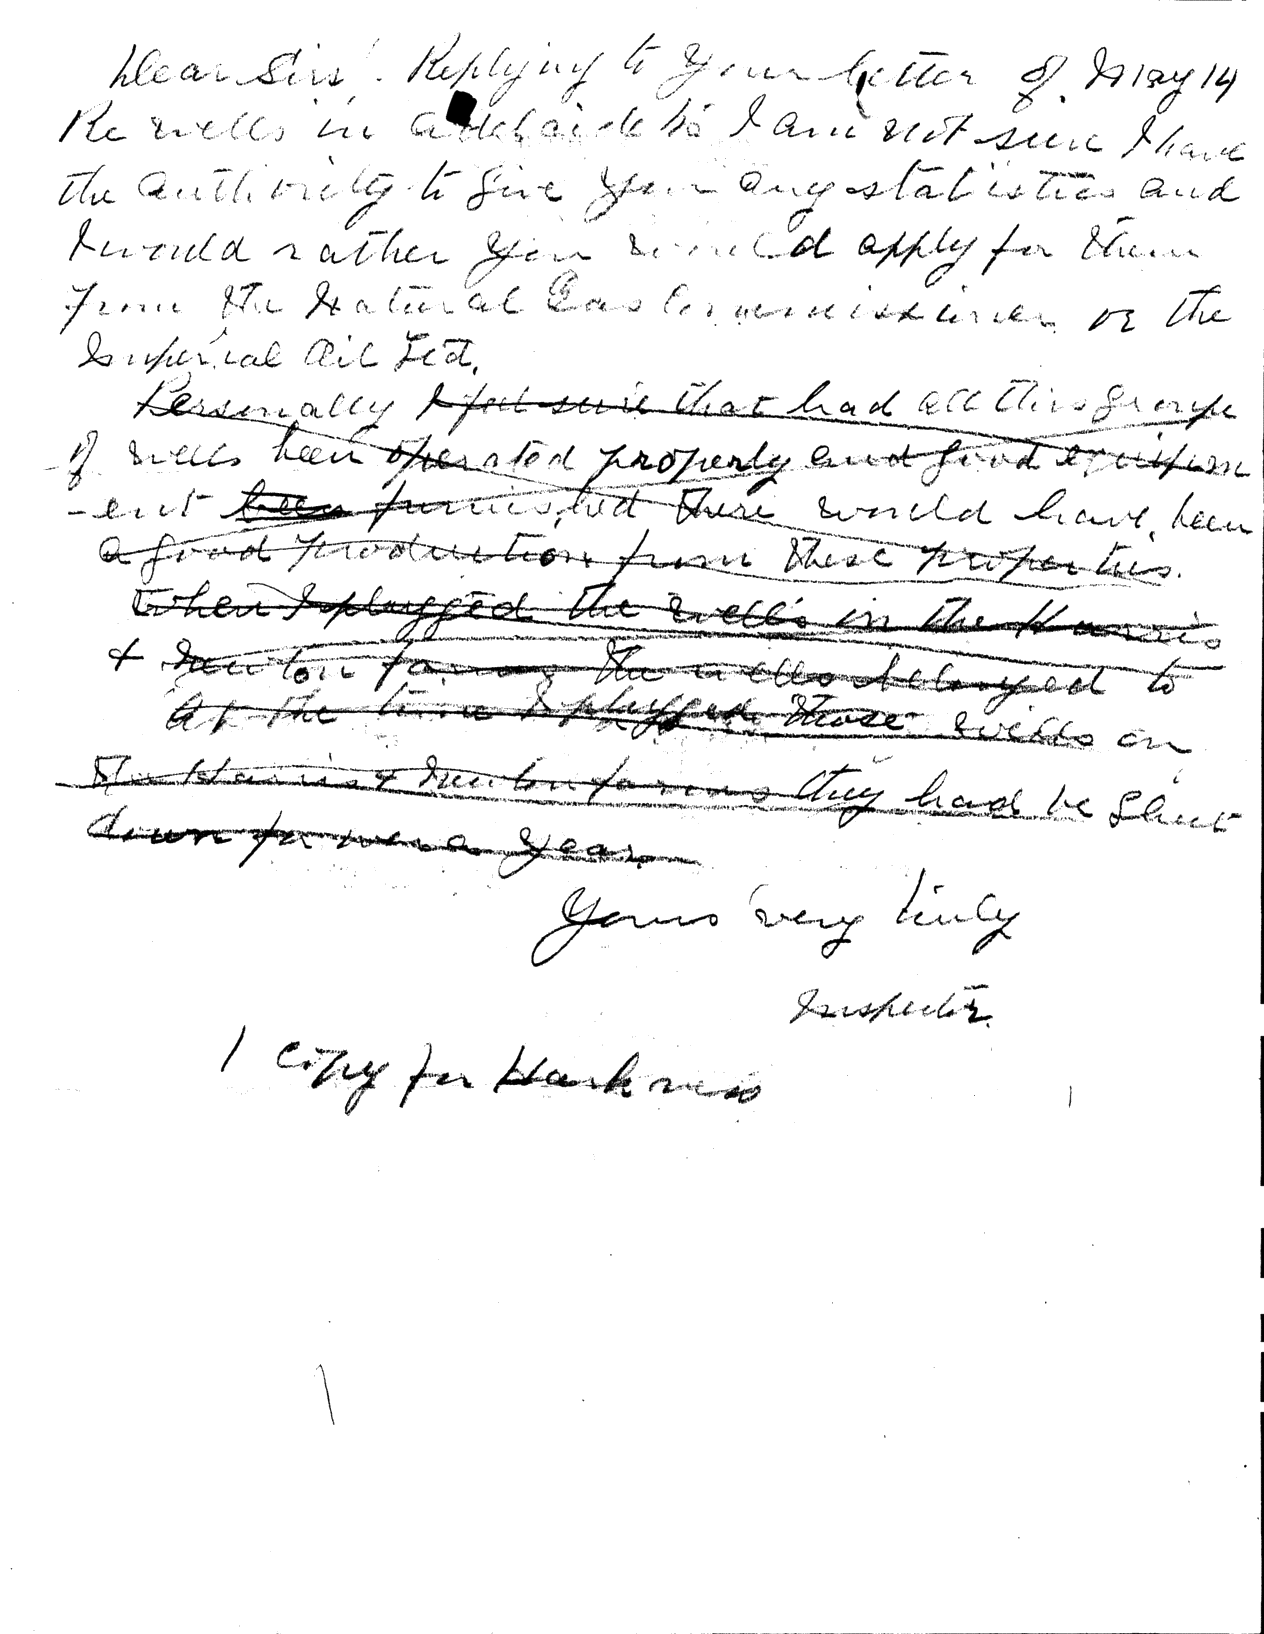 Dear Sir: Replying to your letter of May 14
Re wells in Adelaide I am not sure I have
the authority to give you any statistics and
I would rather you would apply for them
from the Natural Gas Commissioner or the
Imperial Oil Ltd.
Personally I feel sure that had all this group
of wells been operated properly and good equipm
-ent been furnished there would have been
a good production from these properties.
When I plugged the wells in the Harris
& Newton farms the wells belonged to
At the time I plugged those wells on
the Harris & Newton farms they had be shut
down for over a year
Yours very truly
Inspector.
1 copy for Harkness